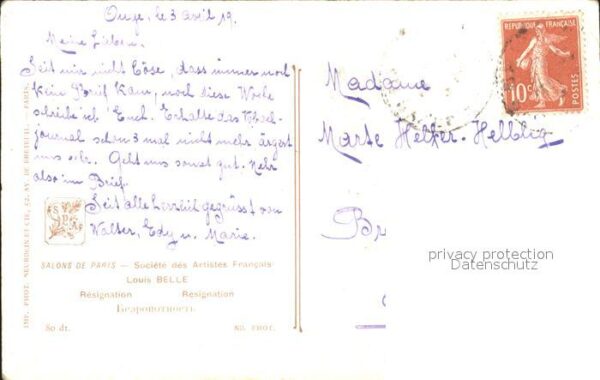 le 3 avril 19.
Meine Lieben.
Seit mir nicht böse, dass immer noch
kein Brief kam, noch diese Woche
schreibe ich Euch. Erhalte das
journal schon 3 mal nicht mehr, ärgert
uns sehr. Geht uns sonst gut. Mehr
also im Brief.
Seit alle herzlich gegrüsst von
Walter, Edy u. Marie.
SALONS DE PARIS — Société des Artistes Français
Louis BELLE
Résignation Résignation
Безропотность
80 dt. ND. PHOT.
IMP. PHOT. NEURDEIN ET CIE, 52, AV. DE BRETEUIL. — PARIS.
RÉPUBLIQUE FRANÇAISE
10c
POSTES
Madame
Marte Helfer-Helblig
privacy protection
Datenschutz